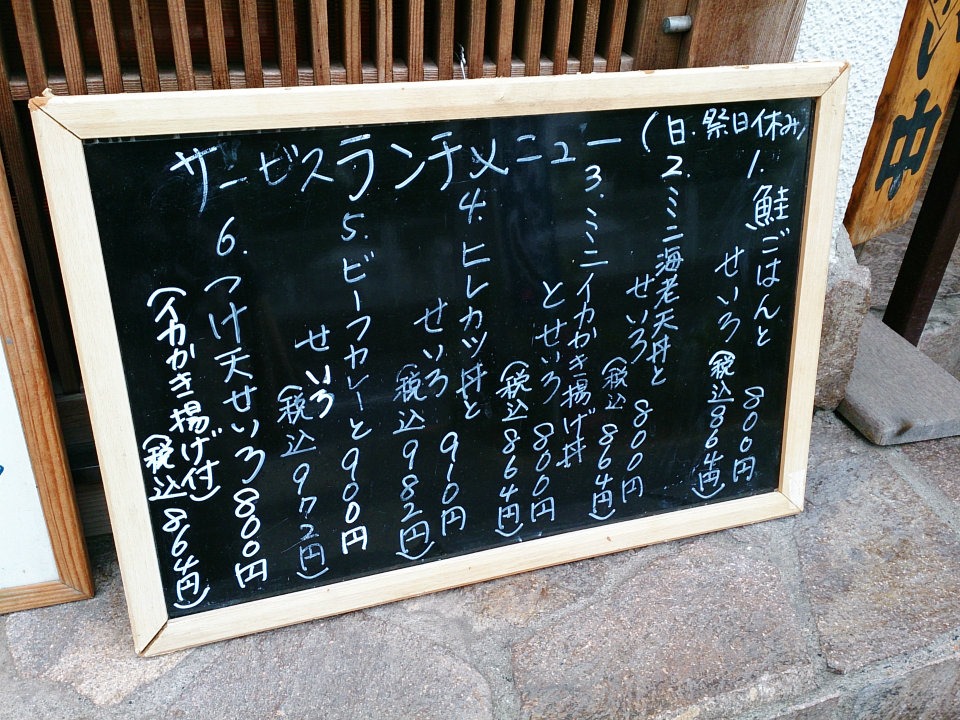 サービスランチメニュー(日.祭日休み)
1.鮭ごはんと
せいろ 800円
(税込864円)
2.ミニ海老天丼と
せいろ 800円
(税込864円)
3.ミニイカかき揚げ丼
とせいろ 800円
(税込864円)
4.ヒレカツ丼と
せいろ 910円
(税込982円)
5.ビーフカレーと
せいろ 900円
(税込972円)
6.つけ天せいろ 800円
(イカかき揚げ付)
(税込864円)
中